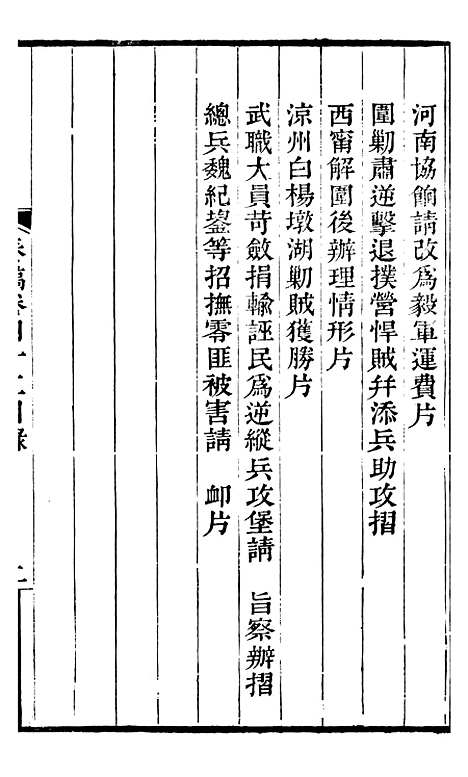 河南協餉請改爲毅軍運費片
圍剿肅逆擊退撲營悍賊幷添兵助攻摺
西甯解圍後辦理情形片
涼州白楊墩湖剿賊獲勝片
武職大員苛斂捐輸誣民爲逆縱兵攻堡請　旨察辦摺
總兵魏紀鋆等招撫零匪被害請　卹片